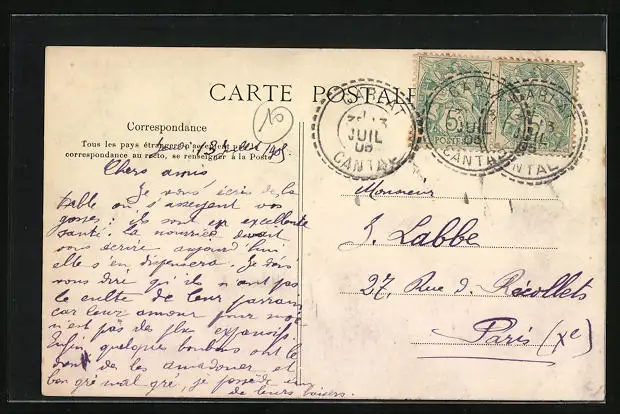 CARTE POSTALE
Correspondance
Tous les pays étrangers n'acceptent pas la
correspondance au recto, se renseigner à la Poste
le 13 1905
Chers amis
Je vous écris de la
table où s'asseyent vos
gosses : ils sont en excellente
santé. La nourrice devait
vous écrire aujourd'hui
elle s'en dispensera. Je dois
vous dire qu'ils n'ont pas
le culte de leur parrain
car leur amour pour moi
n'est pas de plus expansif.
Enfin quelques bonbons ont le
don de les amadouer et
bon gré mal gré, je possède un
de leurs baisers.
CARLAT
13
JUIL
05
CANTAL
5c
POSTES
CARLAT
JUIL
05
CANTAL
CARLAT
13
JUIL
05
CANTAL
Monsieur
J. Labbé
27, Rue d. Récollets
Paris (Xe)